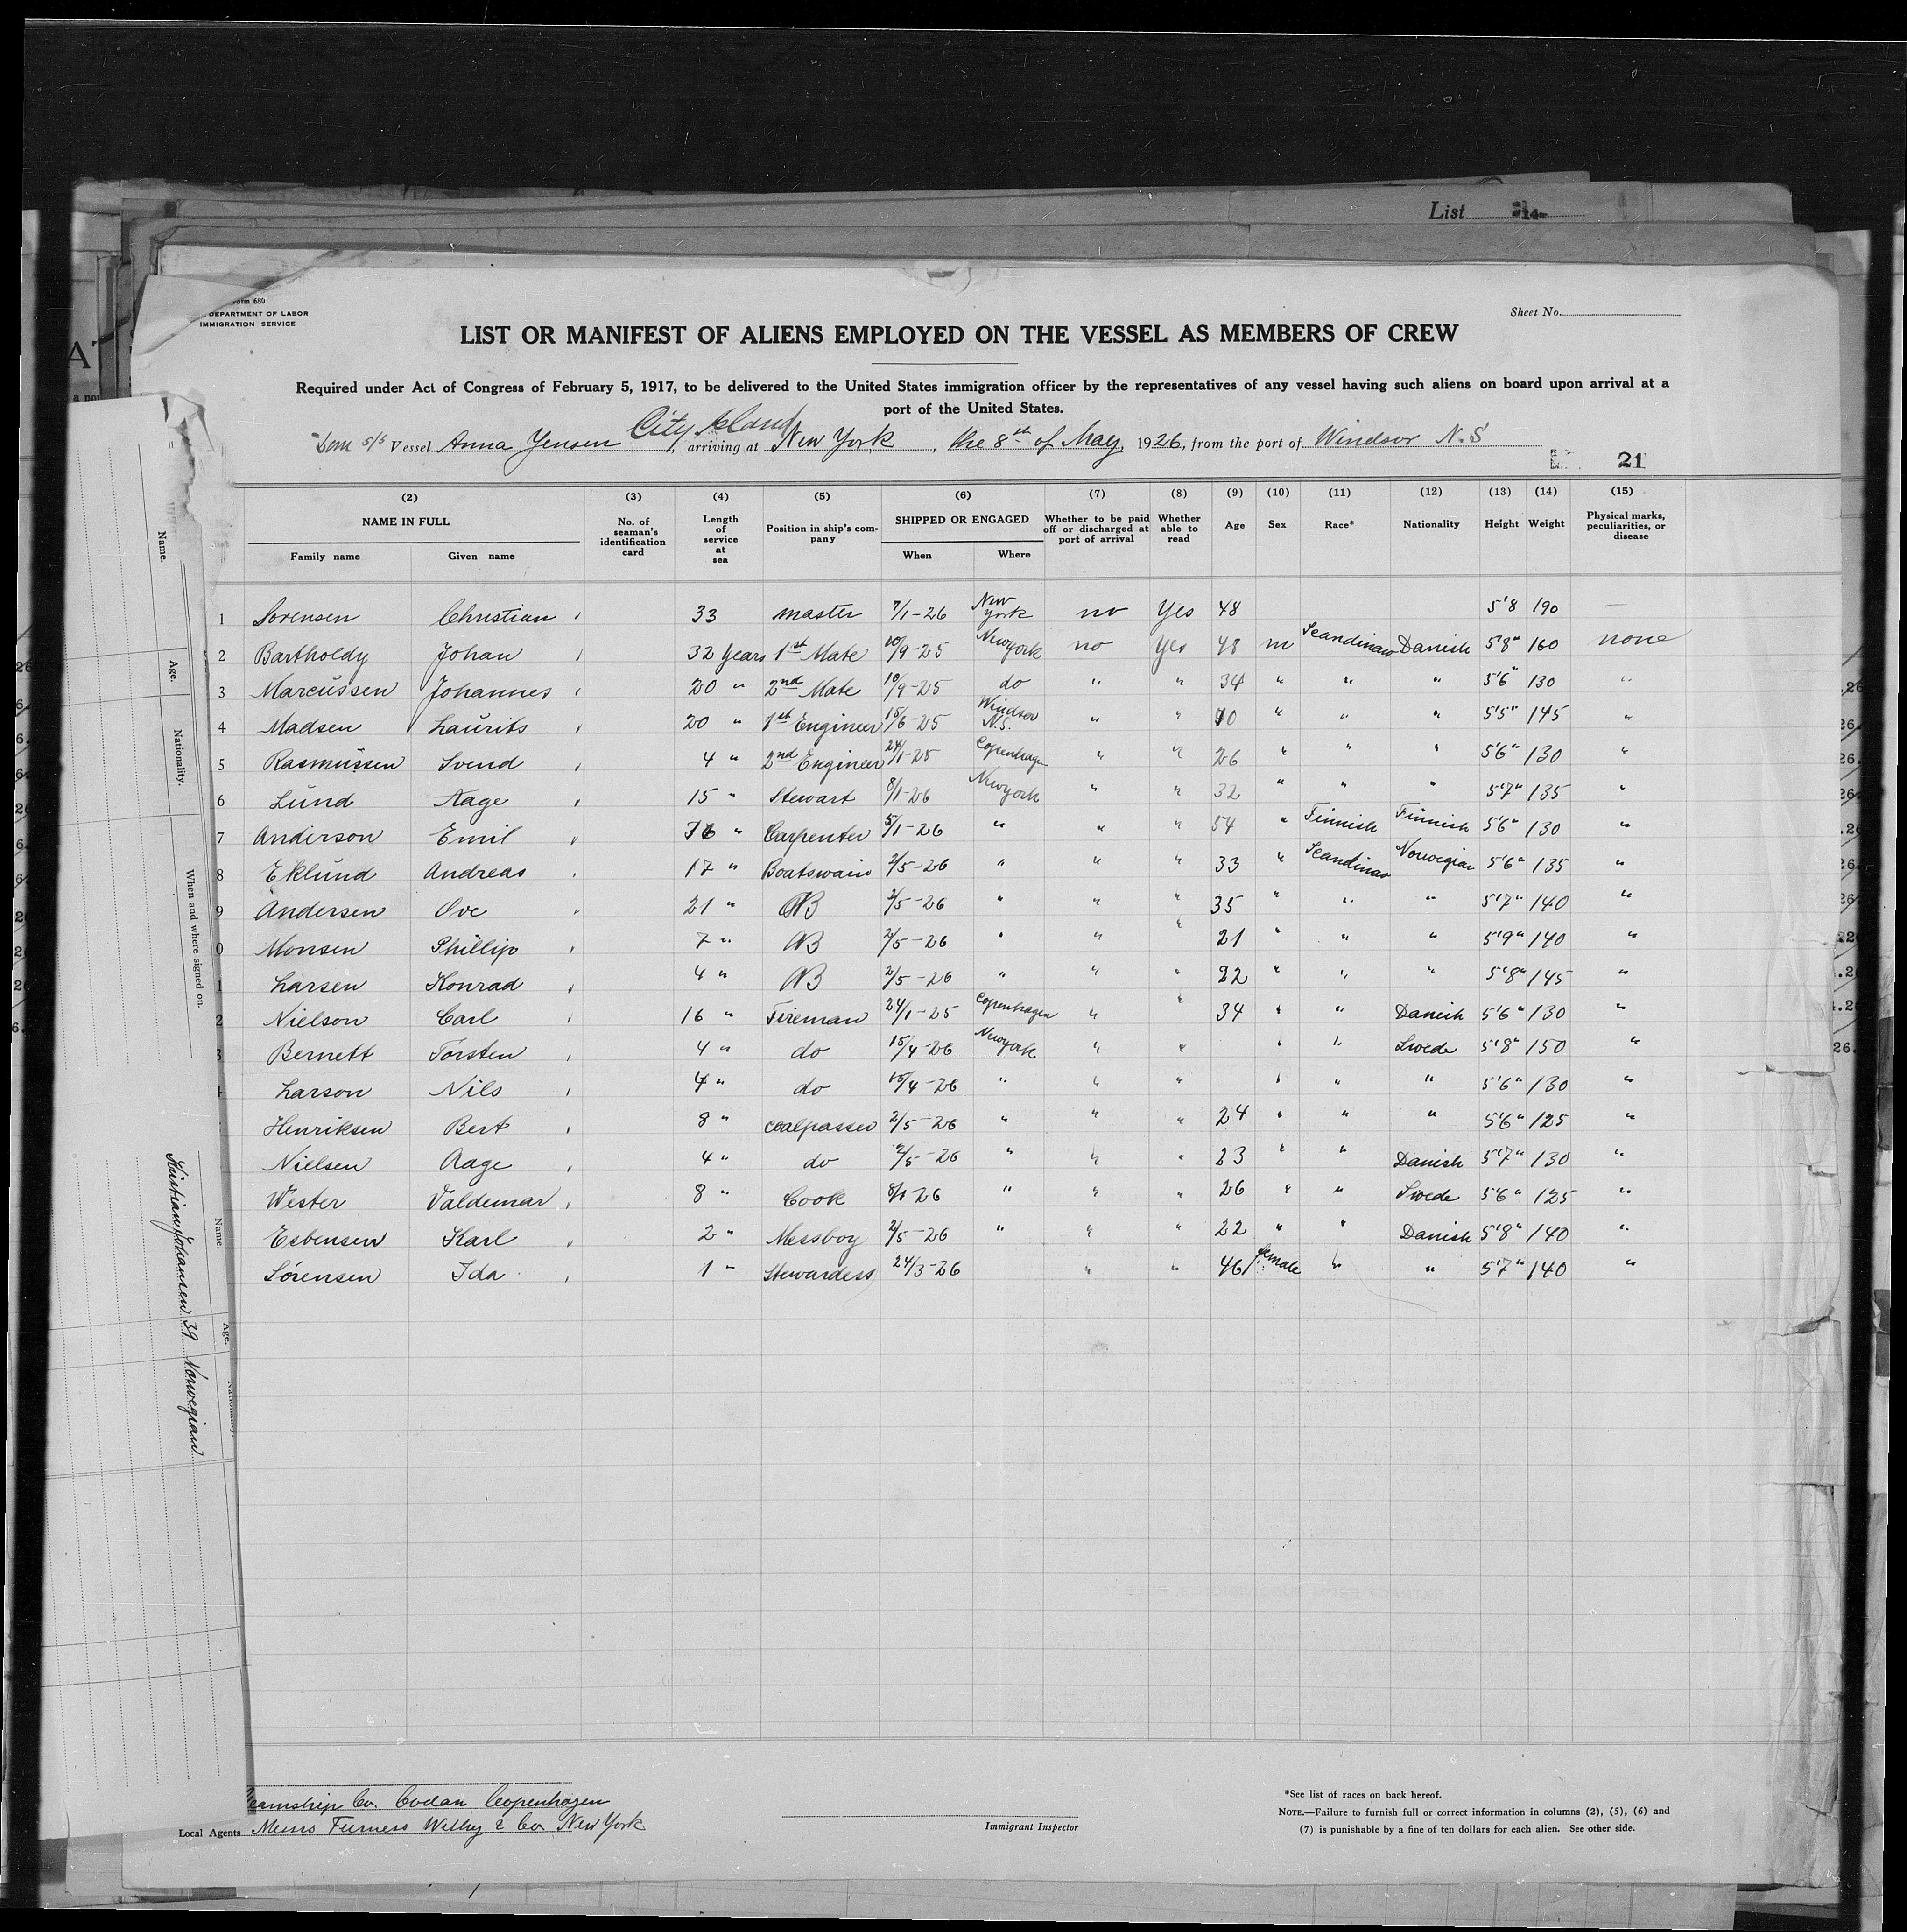 List 14
Form 680
DEPARTMENT OF LABOR
IMMIGRATION SERVICE
Sheet No.
LIST OR MANIFEST OF ALIENS EMPLOYED ON THE VESSEL AS MEMBERS OF CREW
Required under Act of Congress of February 5, 1917, to be delivered to the United States immigration officer by the representatives of any vessel having such aliens on board upon arrival at a
port of the United States.
City Island
S/S Vessel Anna Jensen, arriving at New York, the 8th of May, 1926, from the port of Windsor N.S
21
(2) (3) (4) (5) (6) (7) (8) (9) (10) (11) (12) (13) (14) (15)
NAME IN FULL No. of seaman's identification card Length of service at sea Position in ship's company SHIPPED OR ENGAGED Whether to be paid off or discharged at port of arrival Whether able to read Age Sex Race* Nationality Height Weight Physical marks, peculiarities, or disease
Family name Given name When Where
1 Sorensen Christian 33 master 7/1-26 New York no Yes 48 5'8 190 —
2 Bartholdy Johan 32 years 1st Mate 10/9-25 Newyork no Yes 48 m Scandinav Danish 5'8" 160 none
3 Marcussen Johannes 20 " 2nd Mate 10/9-25 do " " 34 " " " 5'6" 130 "
4 Madsen Laurits 20 " 1st Engineer 15/6-25 Windsor N.S. " " " " " 5'5" 145 "
5 Rasmussen Svend 4 " 2nd Engineer 24/1-25 Copenhag " " 26 " " " 5'6" 130 "
6 Lund Aage 15 " Stewart 8/1-26 Newyork " " 32 " " " 5'7" 135 "
7 Anderson Emil " Carpenter 5/1-26 " " " 54 " Finnish Finnish 5'6" 130 "
8 Eklund Andreas 17 " Boatswain 2/5-26 " " " 33 " Scandinav Norwegian 5'6" 135 "
9 Andersen Ove 21 " AB 2/5-26 " " " 35 " " " 5'7" 140 "
0 Monsen Phillip 7 " AB 2/5-26 " " " 21 " " " 5'9" 140 "
1 Larsen Konrad 4 " AB 2/5-26 " " " 22 " " " 5'8" 145 "
2 Nielson Carl 16 " Fireman 24/1-25 Copenhagen " " 34 " " Danish 5'6" 130 "
3 Bernett Torsten 4 " do 15/4-26 Newyork " " " " Swede 5'8" 150 "
Larson Nils 4 " do 15/4-26 " " " " " " 5'6" 130 "
Henriksen Bert 8 " coalpasser 2/5-26 " " " 24 " " " 5'6" 125 "
Nielsen Aage 4 " do 2/5-26 " " " 23 " " Danish 5'7" 130 "
Wester Valdemar 8 " Cook 8/1-26 " " " 26 " " Swede 5'6" 125 "
Esbensen Karl 2 " Messboy 2/5-26 " " " 22 " " Danish 5'8" 140 "
Sørensen Ida 1 " Stewardess 24/3-26 " " 46 female " " 5'7" 140 "
Name.
Age.
Nationality.
When and where signed on.
Name.
Age.
Nationality.
Kristian Johansen 39 Norwegian
eamship Co. Codan Copenhagen
Local Agents Messrs Furness Withy & Co. New York
Immigrant Inspector
*See list of races on back hereof.
NOTE.—Failure to furnish full or correct information in columns (2), (5), (6) and
(7) is punishable by a fine of ten dollars for each alien. See other side.